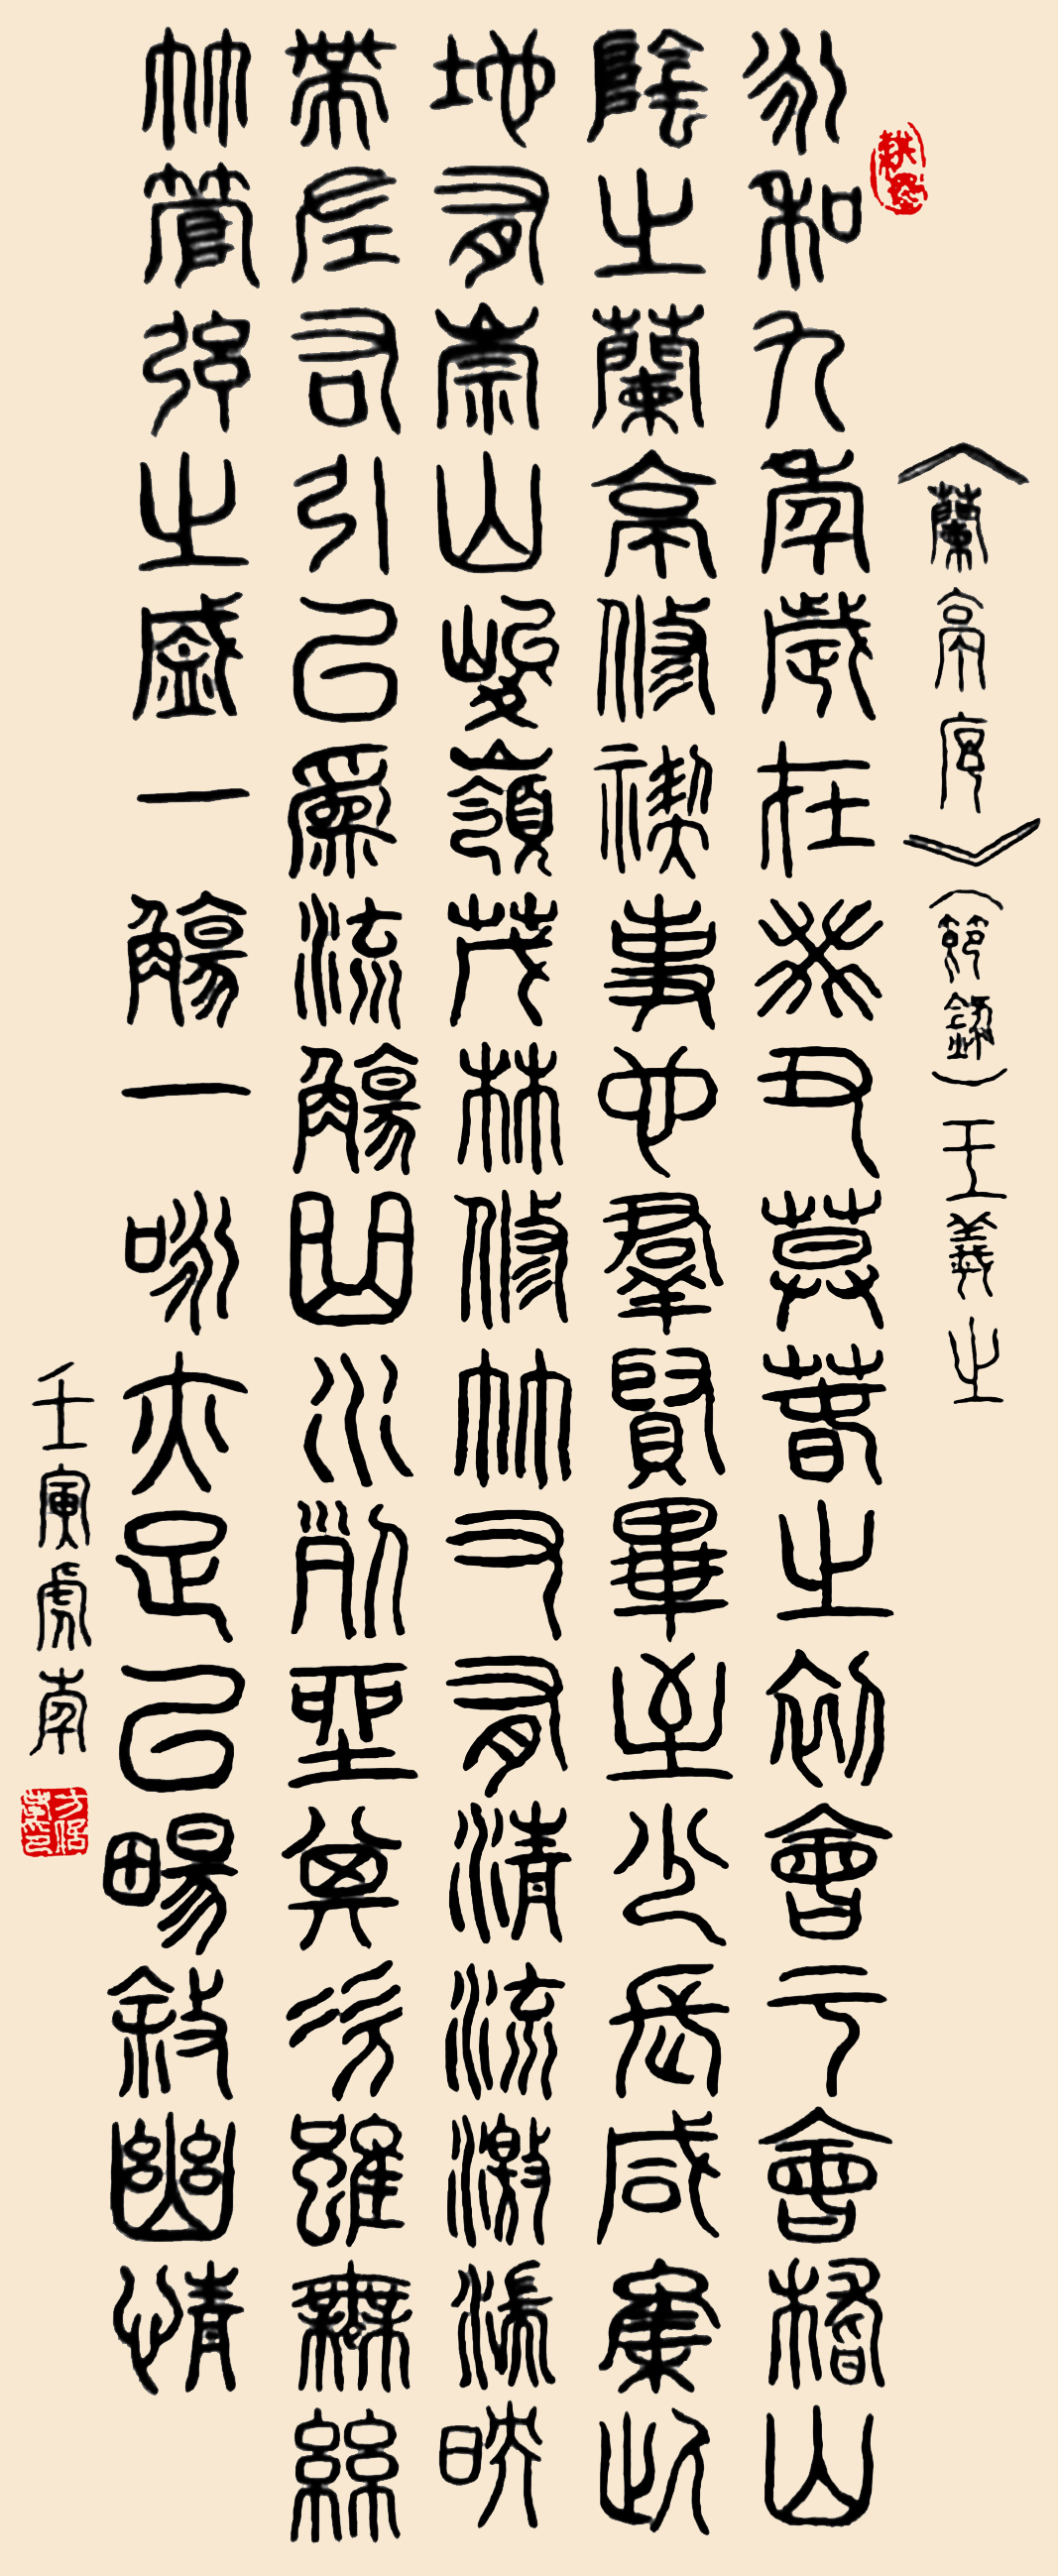 《蘭亭序》（節錄）王羲之
永和九年歲在癸丑莫春之初會于會稽山
陰之蘭亭修禊事也羣賢畢至少長咸集此
地有崇山峻嶺茂林修竹又有清流激湍映
帶左右引以爲流觴曲水列坐其次雖無絲
竹管弦之盛一觴一詠亦足以暢敘幽情
壬寅虎年